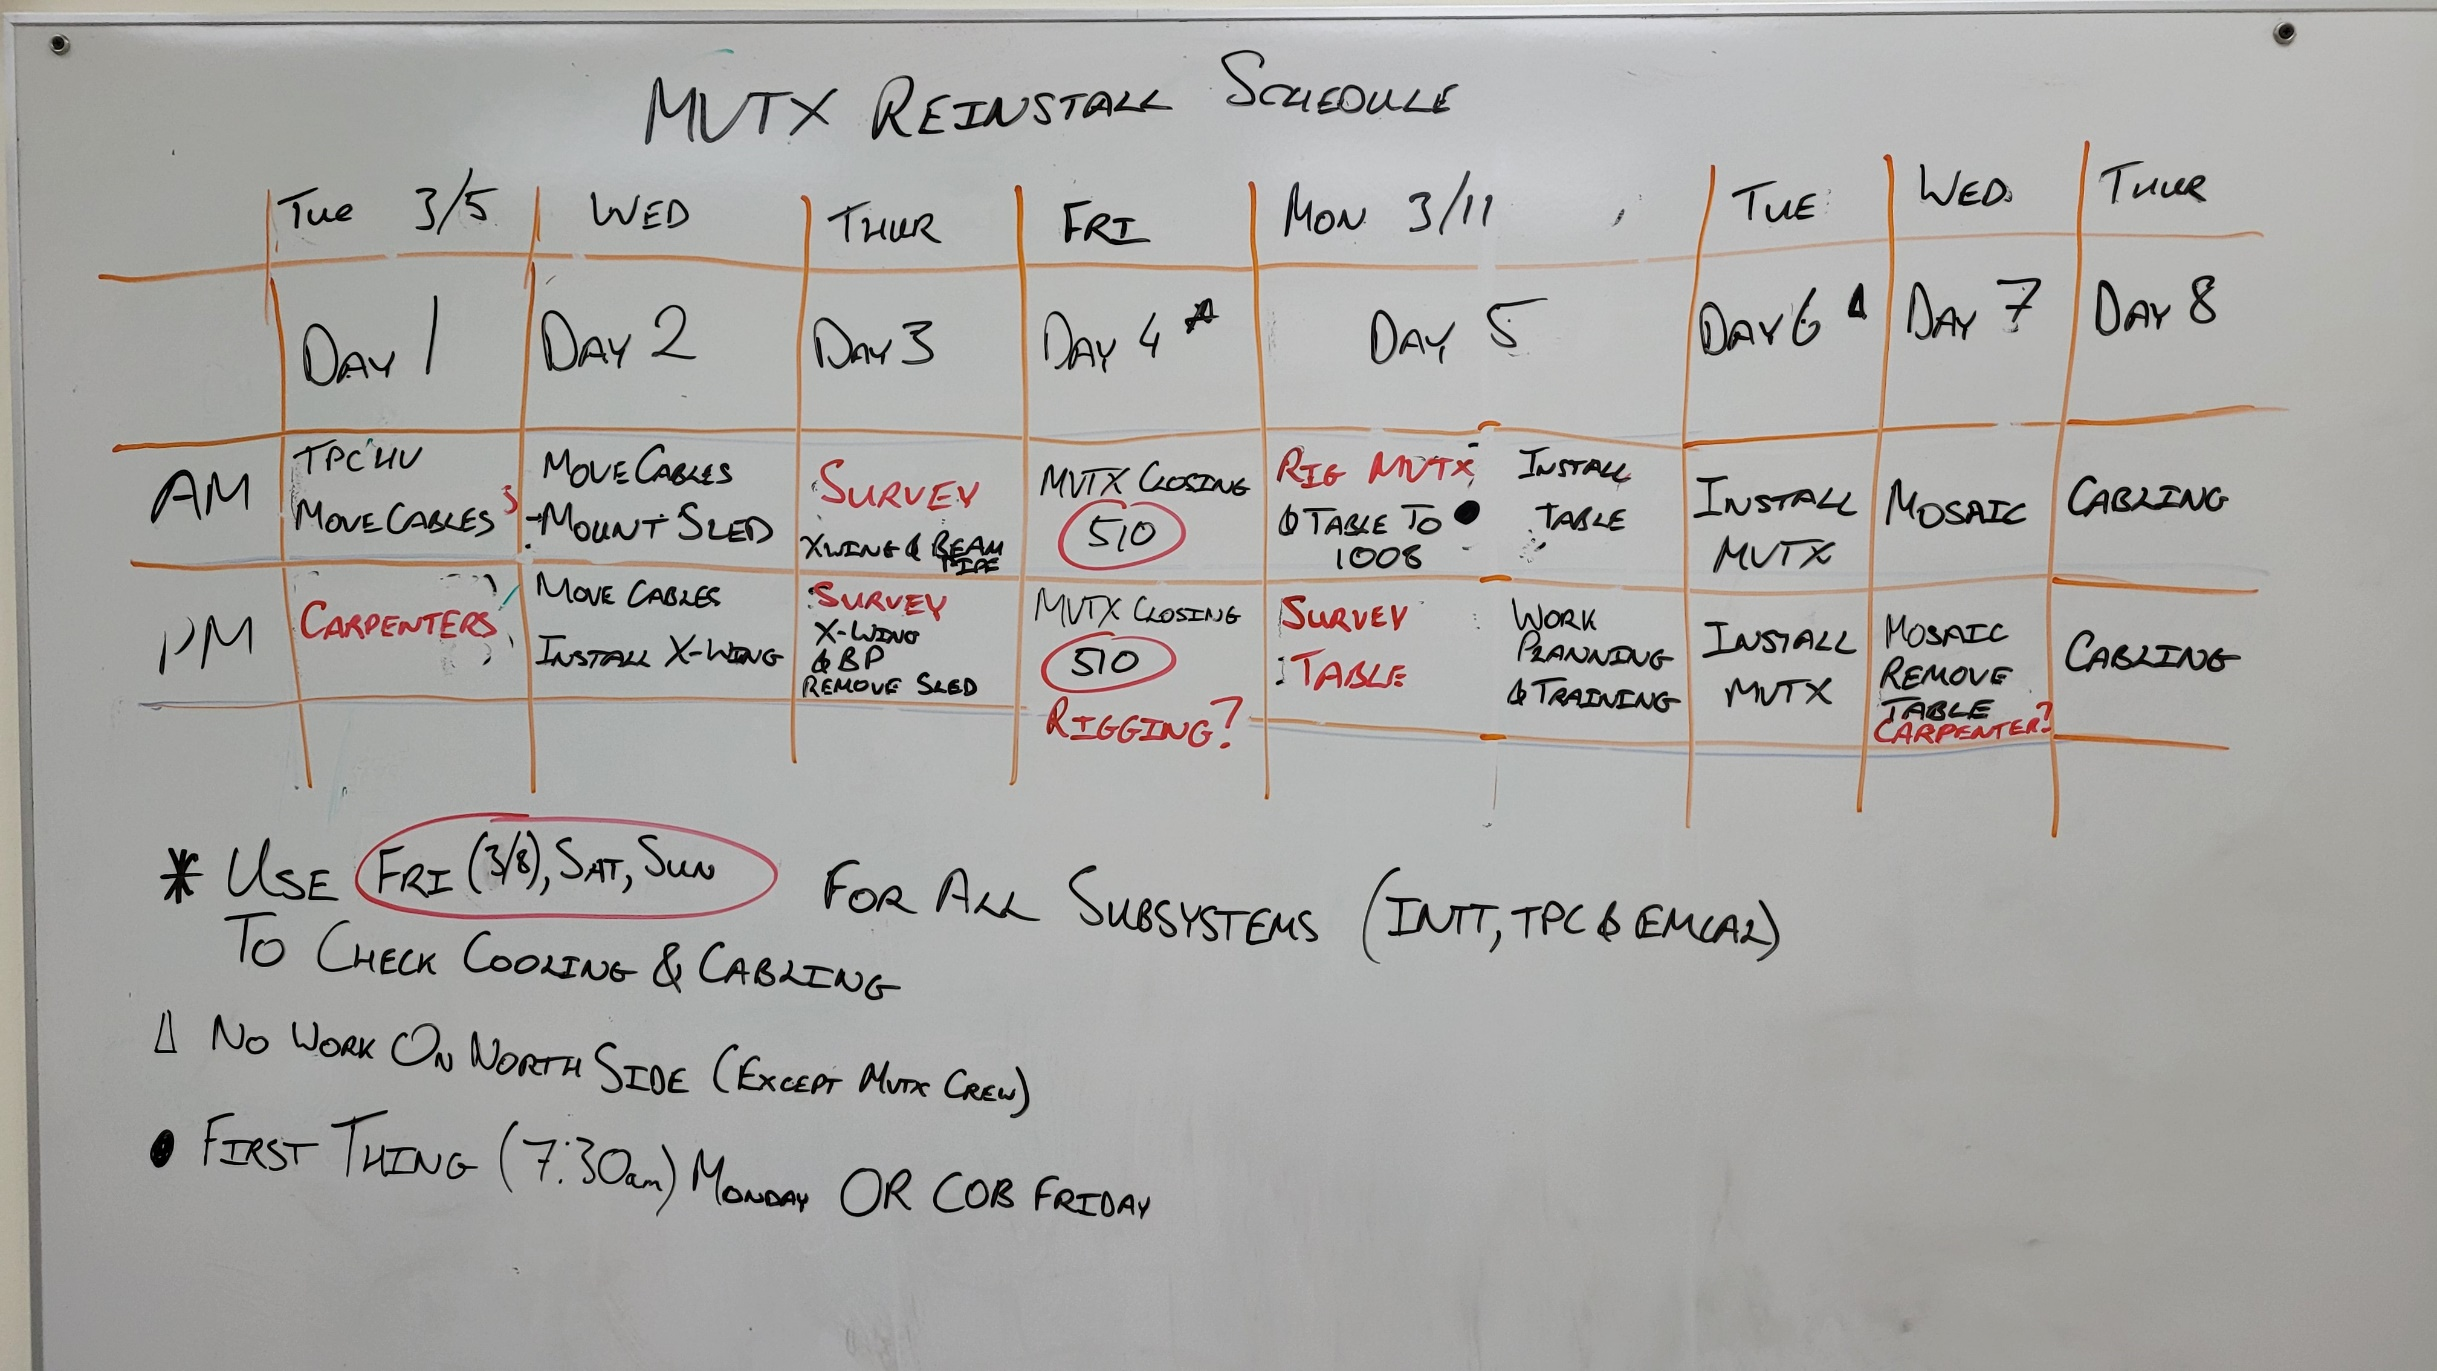 MVTX REINSTALL SCHEDULE
TUE 3/5 WED THUR FRI MON 3/11 TUE WED THUR
DAY 1 DAY 2 DAY 3 DAY 4 * DAY 5 DAY 6 Δ DAY 7 DAY 8
AM
TPC HV
MOVE CABLES
MOVE CABLES
- MOUNT SLED
SURVEY
XWING & BEAM
PIPE
MVTX CLOSING
510
RIG MVTX
& TABLE TO ●
1008
INSTALL
TABLE
INSTALL
MVTX
MOSAIC
CABLING
PM
CARPENTERS
MOVE CABLES
INSTALL X-WING
SURVEY
X-WING
& BP
REMOVE SLED
MVTX CLOSING
510
RIGGING?
SURVEY
TABLE
WORK
PLANNING
& TRAINING
INSTALL
MVTX
MOSAIC
REMOVE
TABLE
CARPENTER?
CABLING
* USE FRI (3/8), SAT, SUN FOR ALL SUBSYSTEMS (INTT, TPC & EMCAL)
TO CHECK COOLING & CABLING
Δ NO WORK ON NORTH SIDE (EXCEPT MVTX CREW)
● FIRST THING (7:30am) MONDAY OR COB FRIDAY